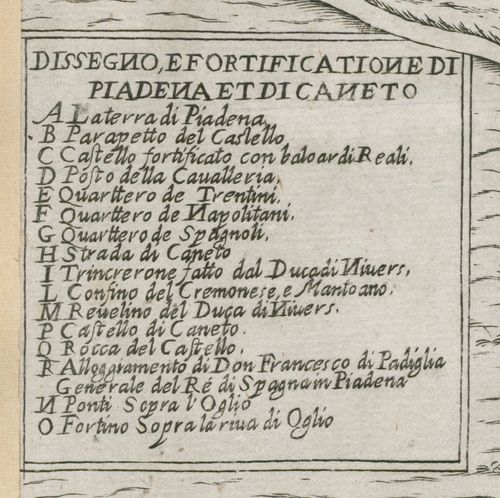 DISSEGNO, E FORTIFICATIONE DI
PIADENA ET DI CANETO
A La terra di Piadena,
B Parapetto del Castello
C Castello fortificato con baloardi Reali,
D Posto della Cauualleria,
E Quarttero de Trentini,
F Quarttero de Napolitani,
G Quarttero de Spagnoli,
H Strada di Caneto
I Trincrerone fatto dal Duca di Niuers,
L Confino del Cremonese, e Mantoano.
M Reuelino del Duca di Niuers.
P Castello di Caneto.
Q Rocca del Castello,
R Alloggramento di Don Francesco di Padiglia
Generale del Ré di Spagna in Piadena
N Ponti Sopra l'Oglio
O Fortino Sopra la riua di Oglio